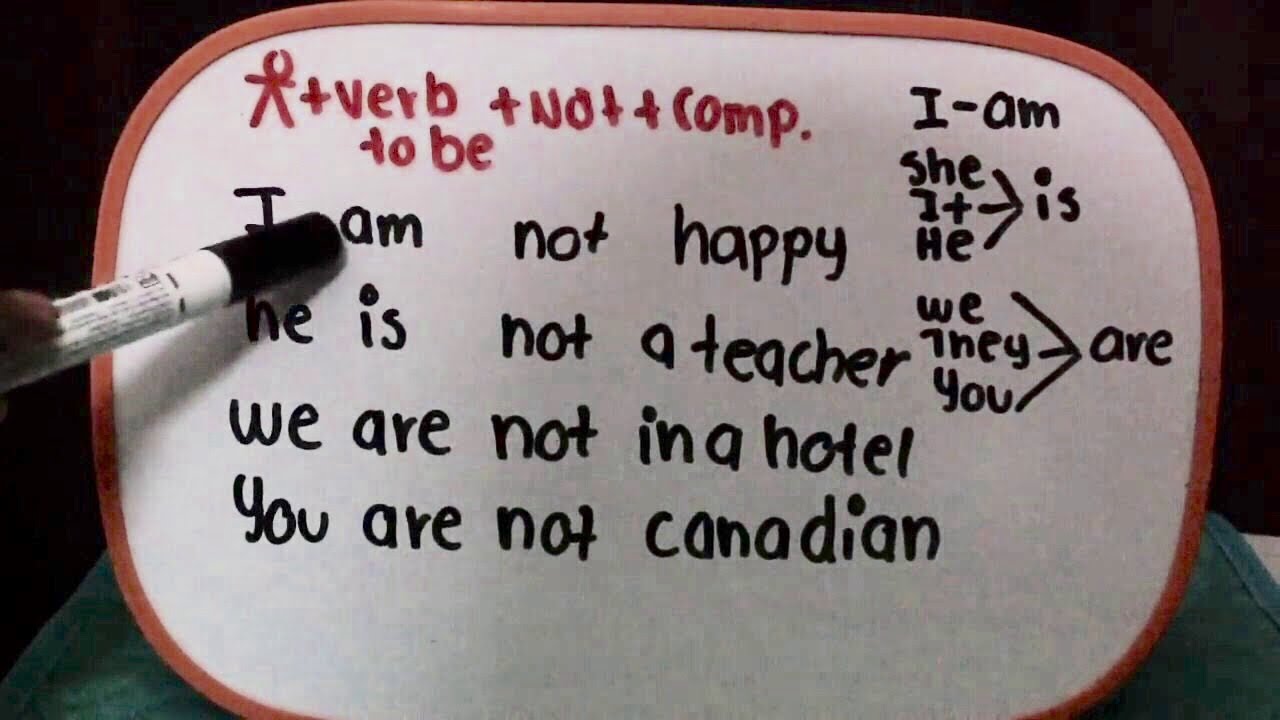 +verb +Not+Comp.
to be
I am not happy
he is not a teacher
we are not in a hotel
you are not canadian
I-am
she
It is
He
we
They are
you